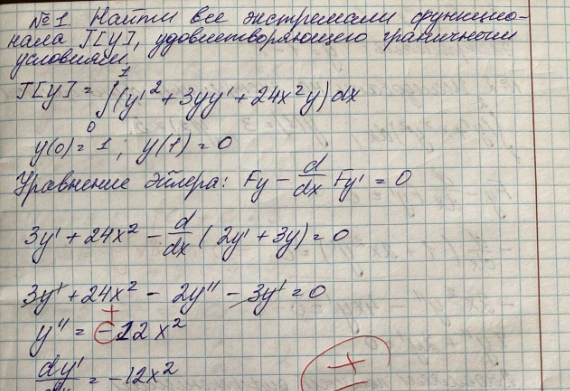 №1 Найти все экстремали функцио-
нала J[y], удовлетворяющего граничным
условиям.
J[y] = ∫₀¹ (y'² + 3yy' + 24x²y)dx
y(0) = 1 ; y(1) = 0
Уравнение Эйлера: Fy - d/dx Fy' = 0
3y' + 24x² - d/dx (2y' + 3y) = 0
3y' + 24x² - 2y'' - 3y' = 0
+
y'' = -12x²
dy'/dx = -12x²
+